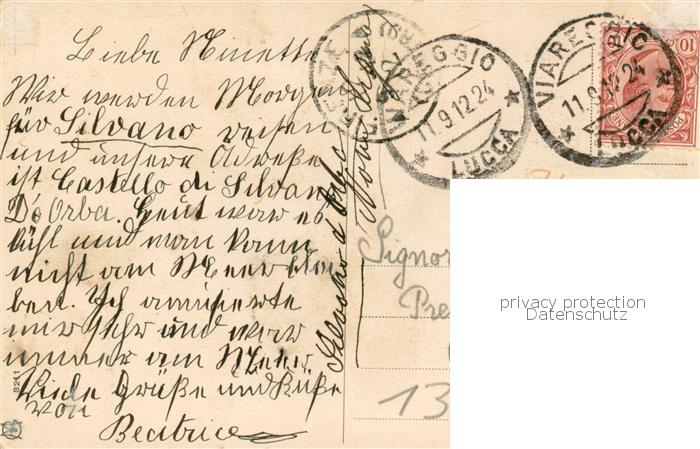 Liebe Ninette
Wir werden Morgen
für Silvano reisen
und unsere Adreße
ist Castello di Silvano
D'Orba. Heut war es
kühl und man kann
nicht am Meer blei
ben. Ich amüsierte
mich sehr und war
immer am Meer.
Viele Grüße und Küße
von
Beatrice
Silvano d'Orba
VIAREGGIO
11.9.12.24
LUCCA
VIAREGGIO
11.9.12.24
LUCCA
10
Signor
Pre
13
8211
privacy protection
Datenschutz